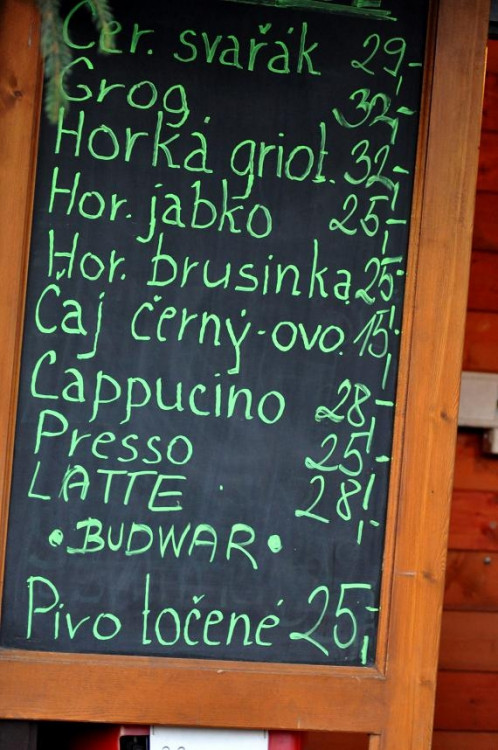 Čer. svařák 29,-
Grog 32,-
Horká griot. 32,-
Hor. jabko 25,-
Hor. brusinka 25,-
Čaj černý-ovo. 15,-
Cappucino 28,-
Presso 25,-
LATTE 28,-
• BUDWAR •
Pivo točené 25,-